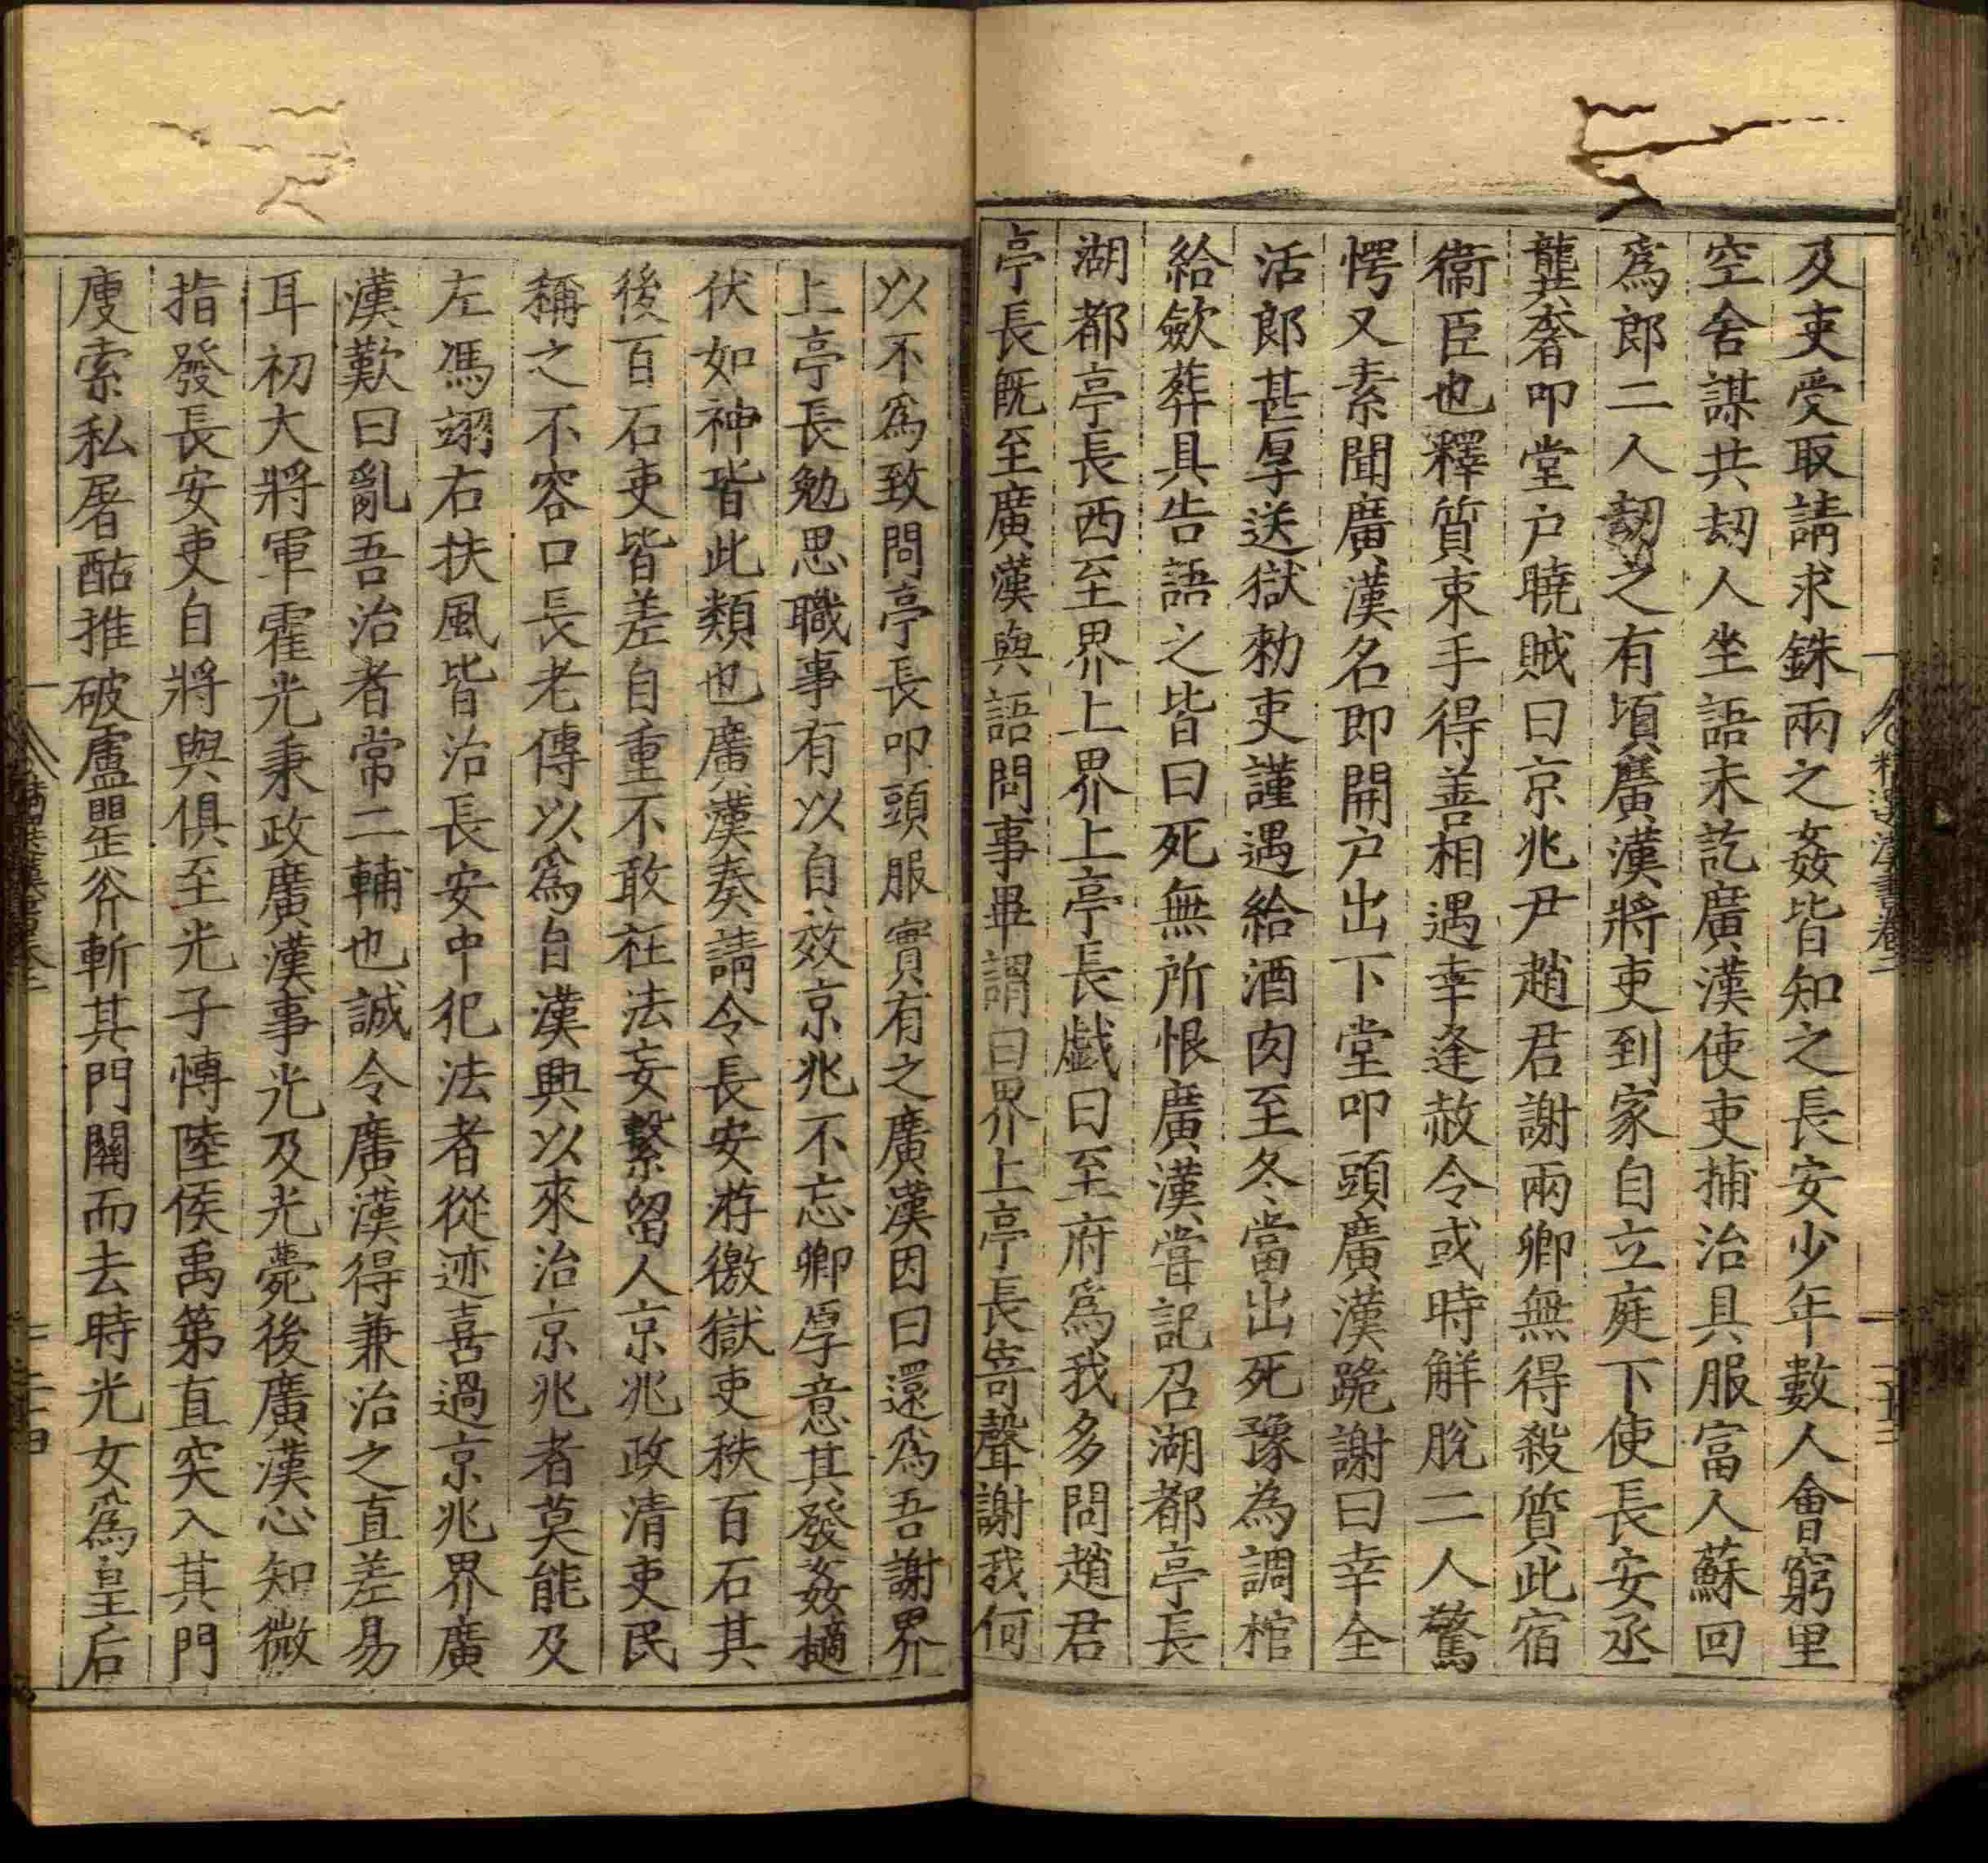 及吏受取請求銖兩之姦皆知之長安少年數人會窮里
空舍謀共刧人坐語未訖廣漢使吏捕治具服富人蘇回
爲郎二人劫之有頃廣漢將吏到家自立庭下使長安丞
龔奢叩堂户曉賊曰京兆尹趙君謝兩卿無得殺質此宿
衞臣也釋質束手得善相遇幸逢赦令或時解脫二人驚
愕又素聞廣漢名即開户出下堂叩頭廣漢跪謝曰幸全
活郎甚厚送獄勑吏謹遇給酒肉至冬當出死豫為調棺
給歛葬具告語之皆曰死無所恨廣漢嘗記召湖都亭長
湖都亭長西至界上界上亭長戯曰至府爲我多問趙君
亭長旣至廣漢與語問事畢謂曰界上亭長寄聲謝我何
以不爲致問亭長叩頭服實有之廣漢因曰還爲吾謝界
上亭長勉思職事有以自效京兆不忘卿厚意其發姦擿
伏如神皆此類也廣漢奏請令長安游徼獄吏秩百石其
後百石吏皆差自重不敢枉法妄繫留人京兆政清吏民
稱之不容口長老傳以爲自漢興以來治京兆者莫能及
左馮翊右扶風皆治長安中犯法者從迹喜過京兆界廣
漢歎曰亂吾治者常二輔也誠令廣漢得兼治之直差易
耳初大將軍霍光秉政廣漢事光及光薨後廣漢心知微
指發長安吏自將與俱至光子慱陸侯禹第直突入其門
廋索私屠酤推破盧罌斧斬其門關而去時光女爲皇后